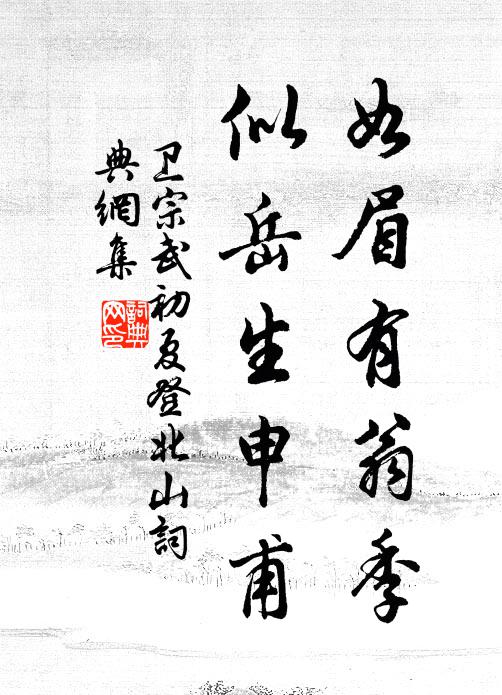 如眉有翁季
似岳生申甫
卫宗武初夏登北山詞
典網集
詞典
网印